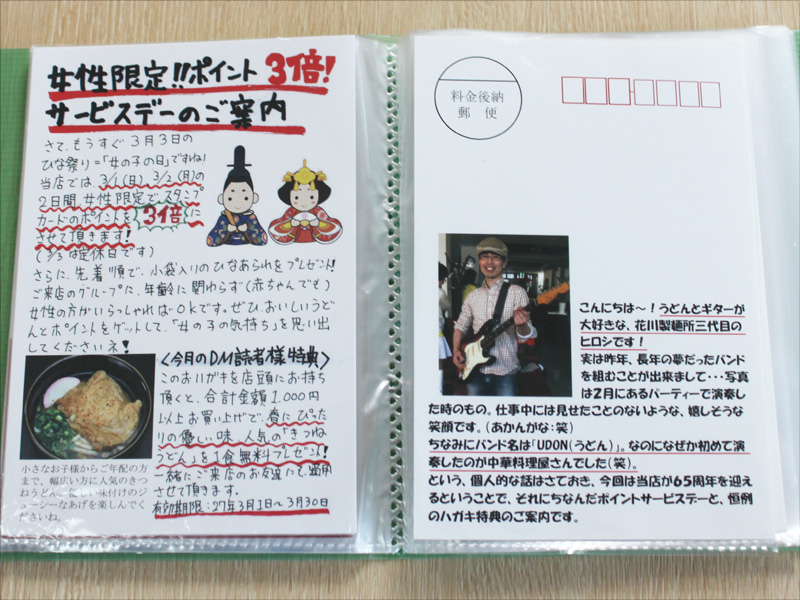 女性限定!!ポイント3倍!
サービスデーのご案内
さて、もうすぐ3月3日の
ひな祭り=「女の子の日」ですね!
当店では、3/1(日)、3/2(月)の
2日間、女性限定で、スタンプ
カードのポイントを3倍に
させて頂きます!
(3/3は定休日です)
さらに、先着順で、小袋入りのひなあられをプレゼント!
ご来店のグループに、年齢に関わらず(赤ちゃんでも)
女性の方がいらっしゃればOKです。ぜひ、おいしいうど
んとポイントをゲットして、「女の子の気持ち」を思い出
してくださいネ!
<今月のDM読者様特典>
このおハガキを店頭にお持ち
頂くと、合計金額1,000円
以上お買い上げで、春にぴった
りの優しい味、人気の「きつね
うどん」を1食無料プレゼント!
一緒にご来店のお友達にも、適用
させて頂きます。
有効期限:27年3月1日~3月30日
小さなお子様からご年配の方
まで、幅広い方に人気のきつ
ねうどん。優しい味付けのジ
ューシーなあげを楽しんでく
ださいね。
料金後納
郵便
こんにちは~!うどんとギターが
大好きな、花川製麺所三代目の
ヒロシです!
実は昨年、長年の夢だったバンド
を組むことが出来まして・・・写真
は2月にあるパーティーで演奏し
た時のもの。仕事中には見せたことのないような、嬉しそうな
笑顔です。(あかんがな:笑)
ちなみにバンド名は「UDON(うどん)」。なのになぜか初めて演
奏したのが中華料理屋さんでした(笑)。
という、個人的な話はさておき、今回は当店が65周年を迎え
るということで、それにちなんだポイントサービスデーと、恒例
のハガキ特典のご案内です。